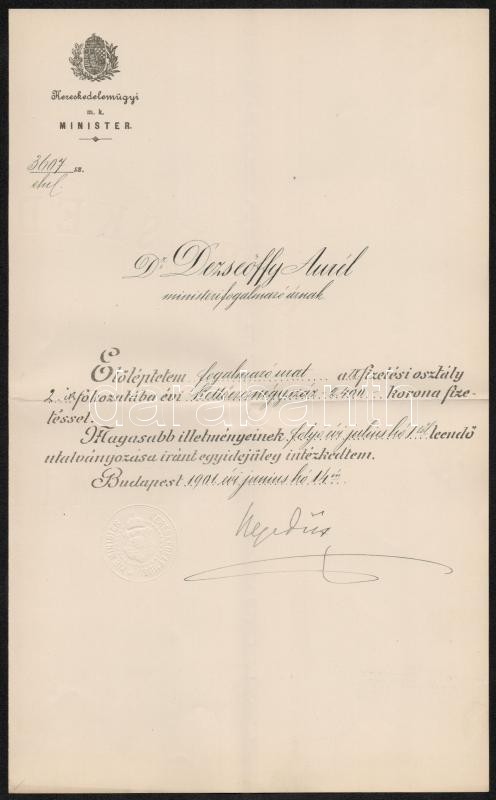 Kereskedelemügyi
m. k.
MINISTER.
3607 sz.
eln.
Dr. Dezseőffy Aurél
ministerifogalmazó úrnak
Előléptetem fogalmazó urat a X fizetési osztály
2. ik fokozatába évi kettőezernégyszáz 2400 korona fize-
téssel.
Magasabb illetményeinek folyó évi július hó 1 től leendő
utalványozása iránt egyidejűleg intézkedtem.
Budapest 1901 évi junius hó 14 én.
Hegedűs
darabanth